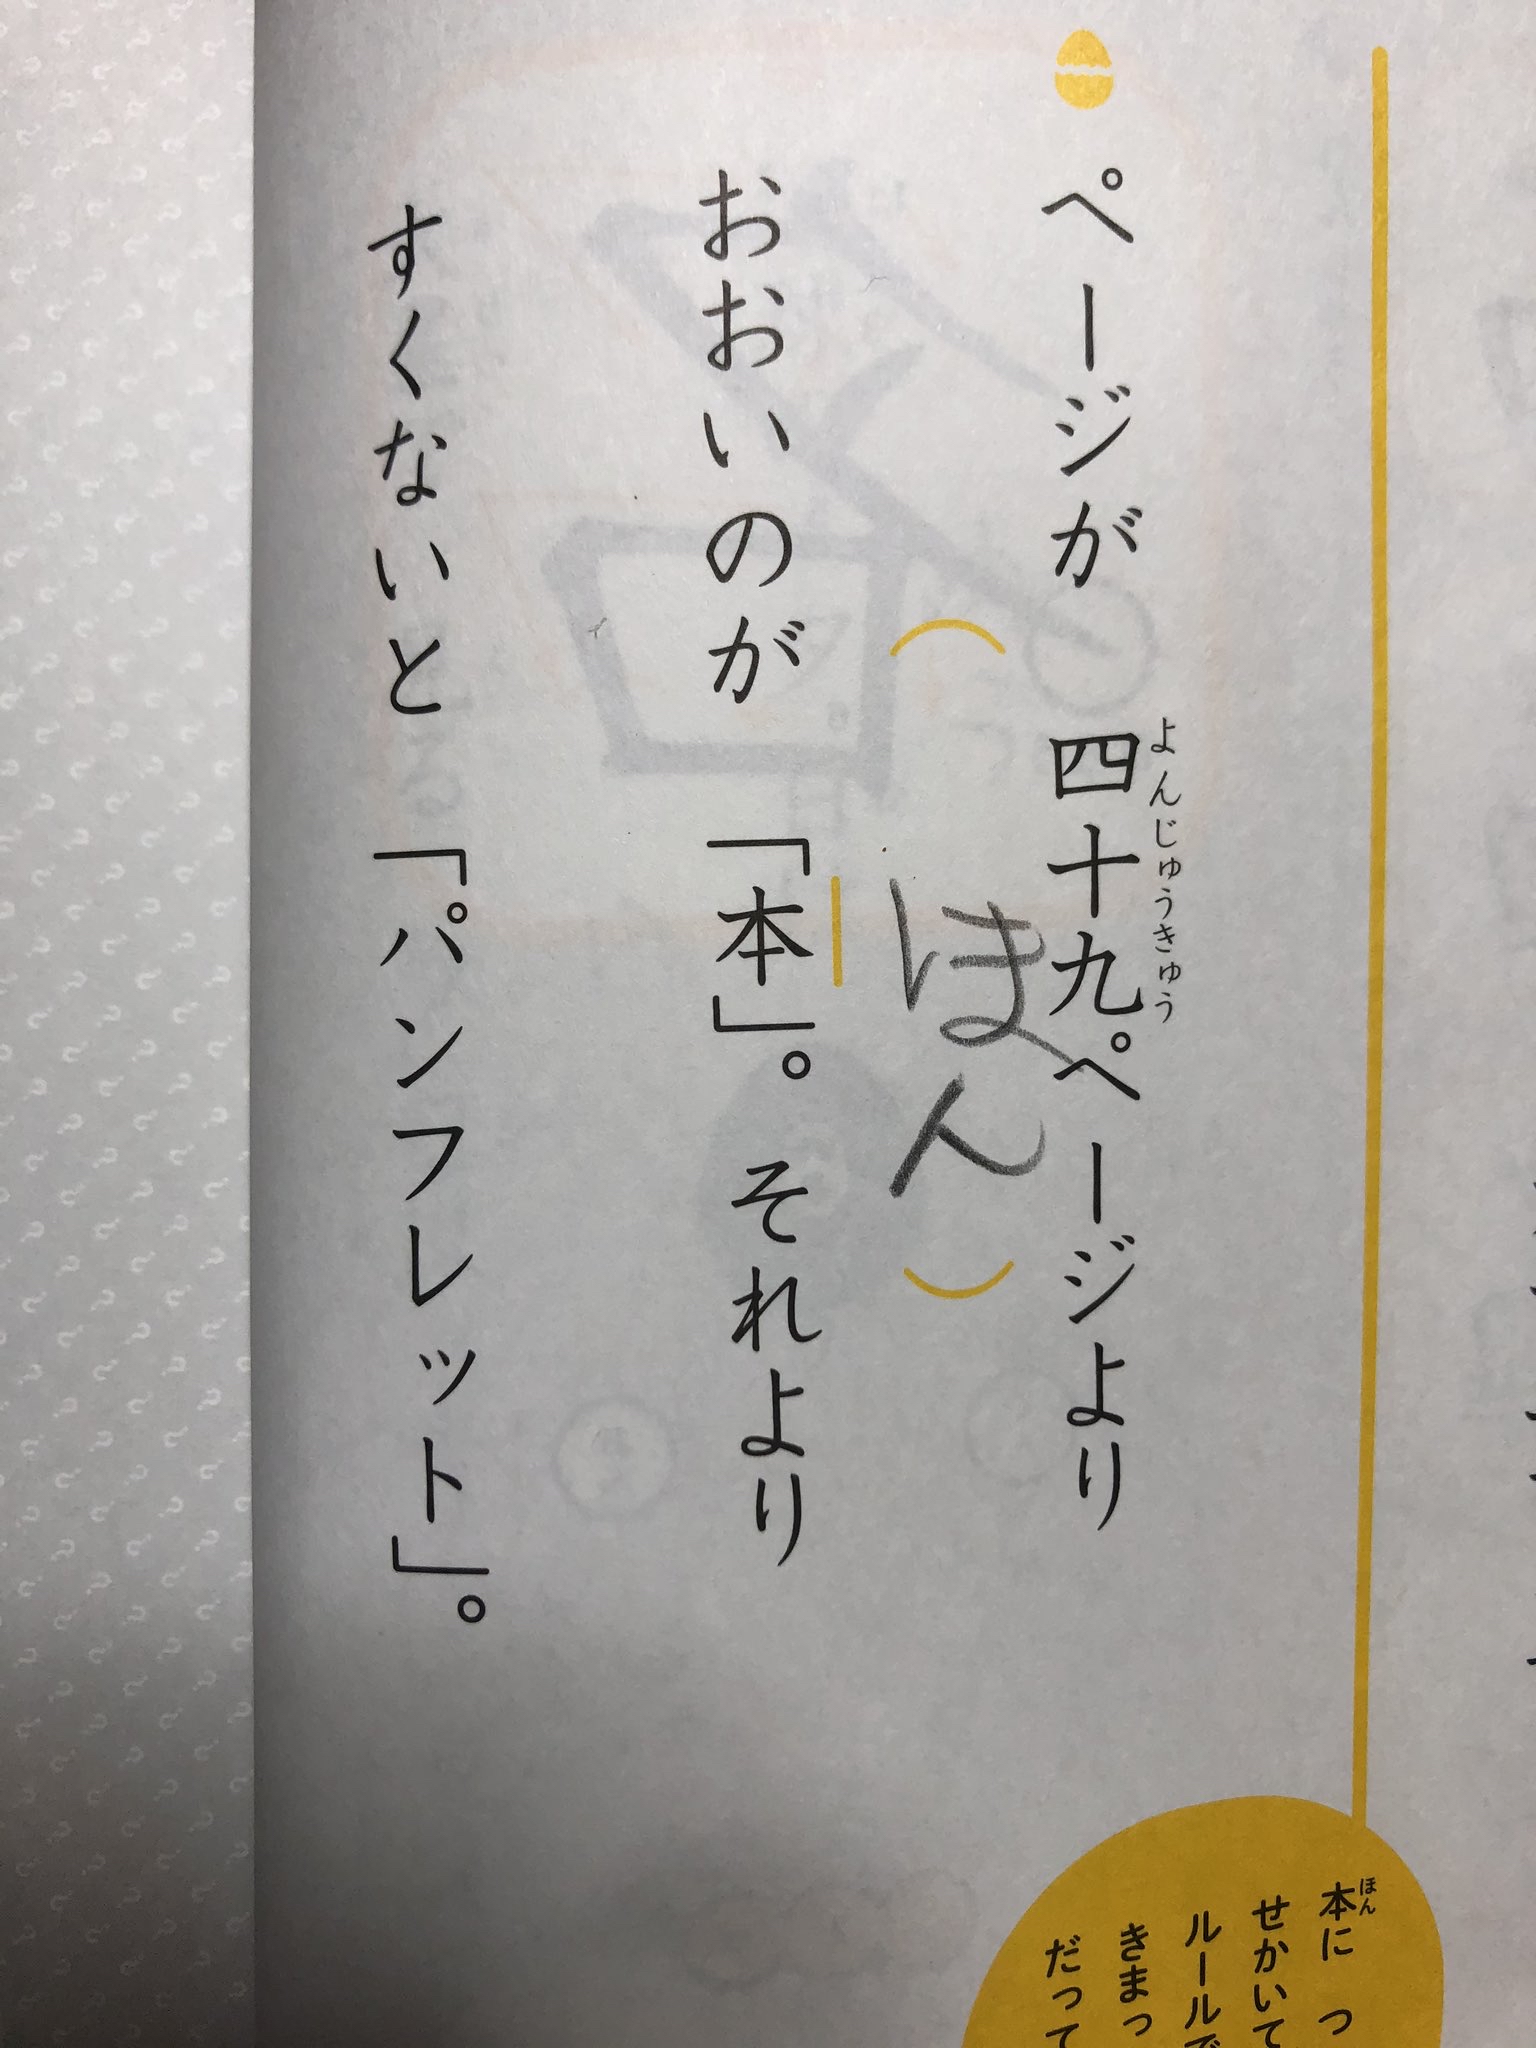 ページが 四十九ページより
よんじゅうきゅう
（ほん）
おおいのが 「本」。それより
すくないと 「パンフレット」。
ほん
本に つ
せかいて
ルールで
きまっ
だって